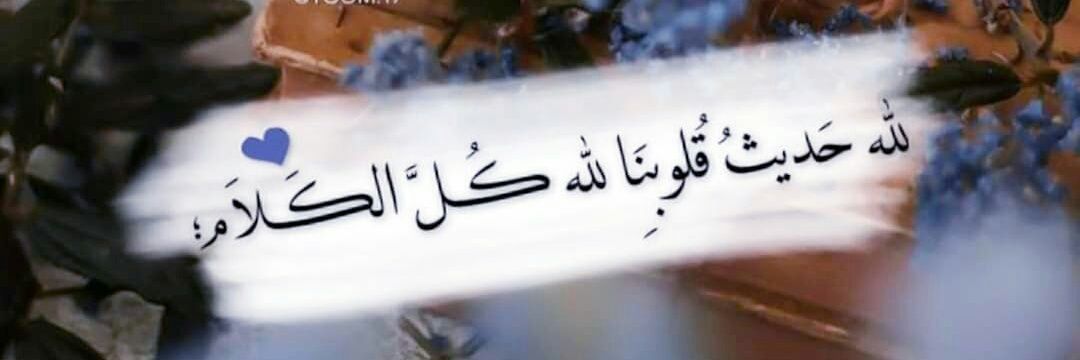 لله حَديثُ قُلوبِنَا لله كُلَّ الكَلاَم؛